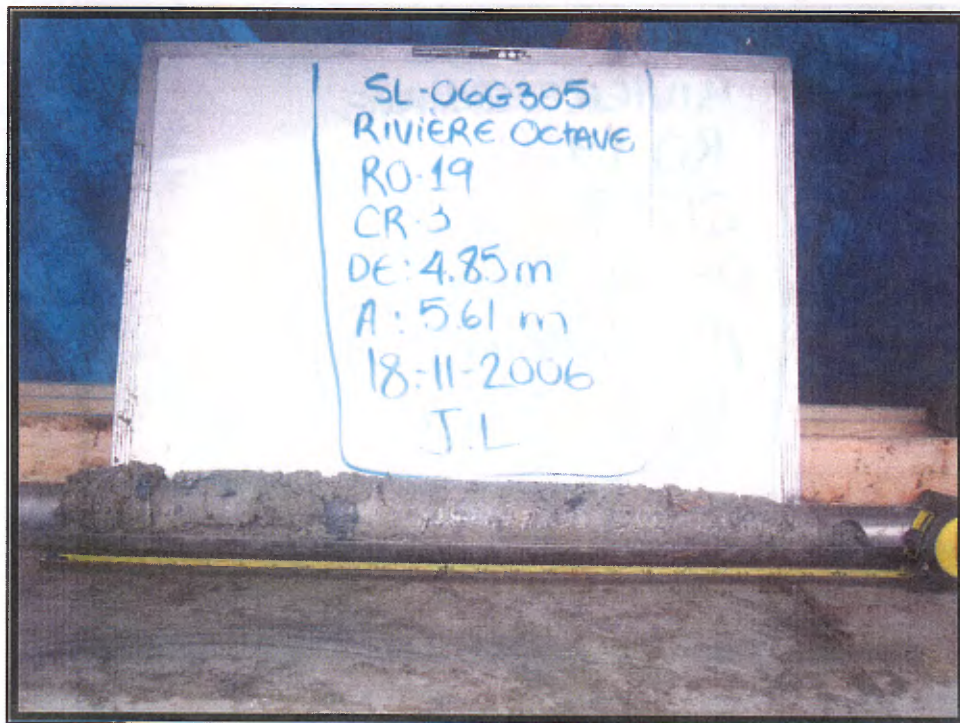 SL-06G305
RIVIÈRE OCTAVE
RO-19
CR-3
DE: 4.85m
A: 5.61 m
18-11-2006
J.L